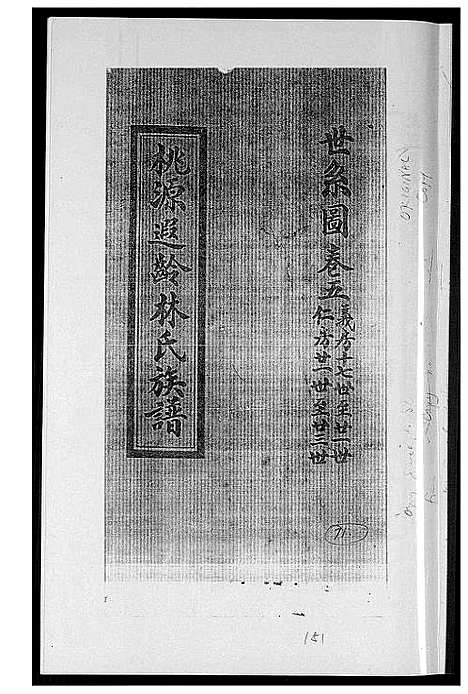 世系圖 卷五
義房十七世至廿一世
仁房廿一世至廿三世
桃源遐齡林氏族譜
71
151